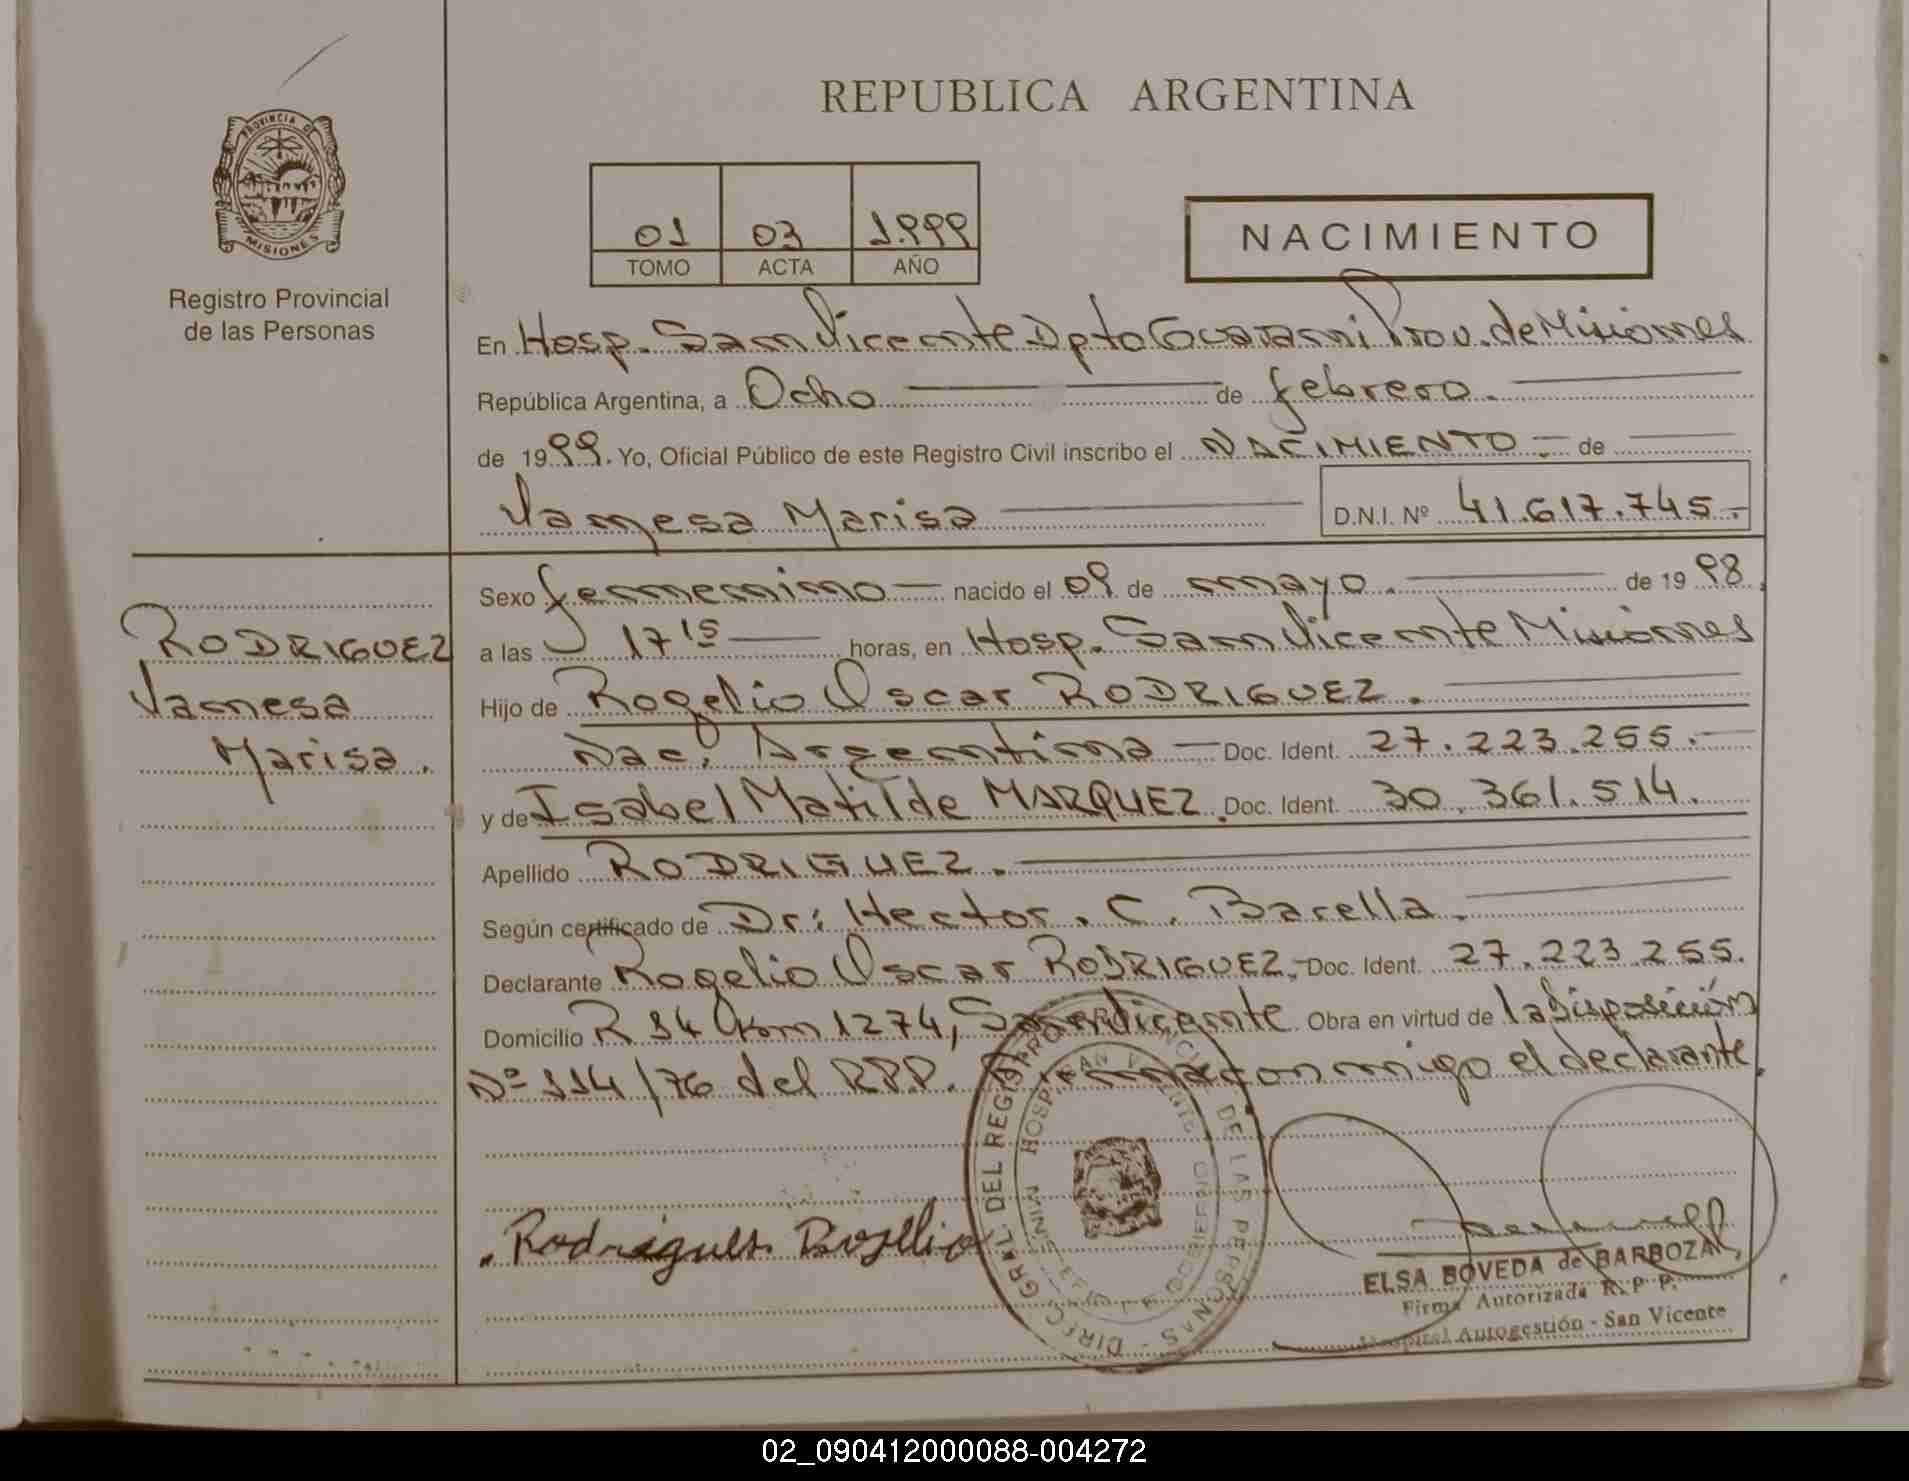 PROVINCIA DE
MISIONES
Registro Provincial
de las Personas
REPUBLICA ARGENTINA
01 03 1.999
TOMO ACTA AÑO
NACIMIENTO
En Hosp. San Vicente Dpto Guarani Prov. de Misiones
República Argentina, a Ocho de febrero.
de 1999. Yo, Oficial Público de este Registro Civil inscribo el NACIMIENTO.- de
Vanesa Marisa D.N.I. Nº 41.617.745.-
RODRIGUEZ
Vanesa
Marisa.
Sexo femenino nacido el 09 de mayo. de 1998.
a las 17 15 horas, en Hosp. San Vicente Misiones
Hijo de Rogelio Oscar RODRIGUEZ.
Nac. Argentina Doc. Ident. 27.223.255.
y de Isabel Matilde MARQUEZ. Doc. Ident. 30.361.514.
Apellido RODRIGUEZ.
Según certificado de Dr: Hector. C. Barella.
Declarante Rogelio Oscar RODRIGUEZ, Doc. Ident. 27.223.255.
Domicilio R 14 Km 1274, San Vicente. Obra en virtud de la Disposición
Nº 114/76 del R.P.P. Firma conmigo el declarante.
DIREC. GRAL DEL REGISTRO PROVINCIAL DE LAS PERSONAS
HOSP. SAN VICENTE
Rodrigues Rogelio
ELSA BOVEDA de BARBOZA
Firma Autorizada R. P. P.
Hospital Autogestión - San Vicente
02_090412000088-004272